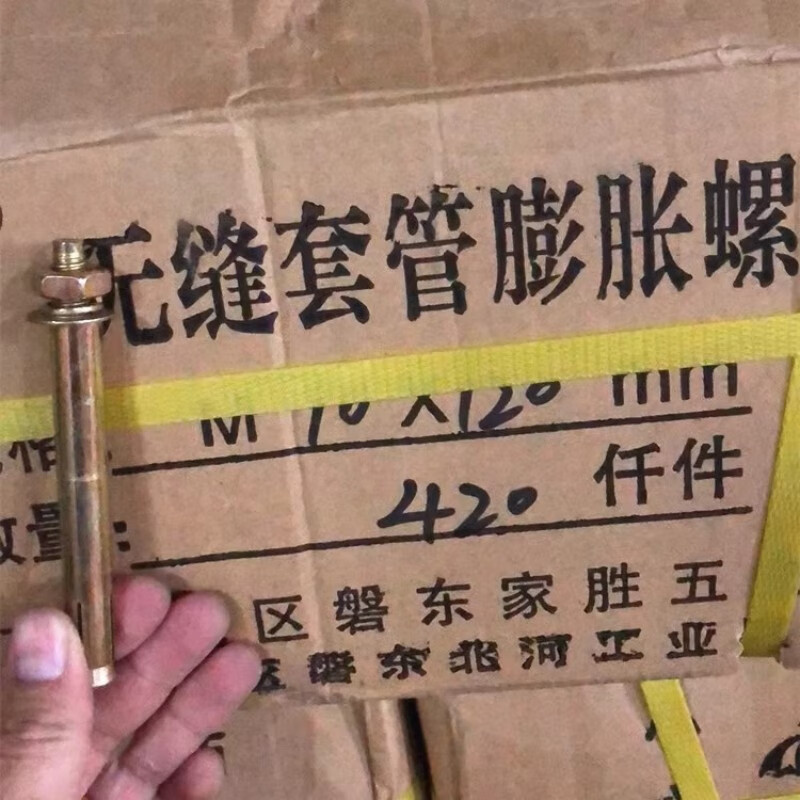 无缝套管膨胀螺
格: M 10 X120 mm
数量: 420 仟件
区磐东家胜五
磐东北河工业